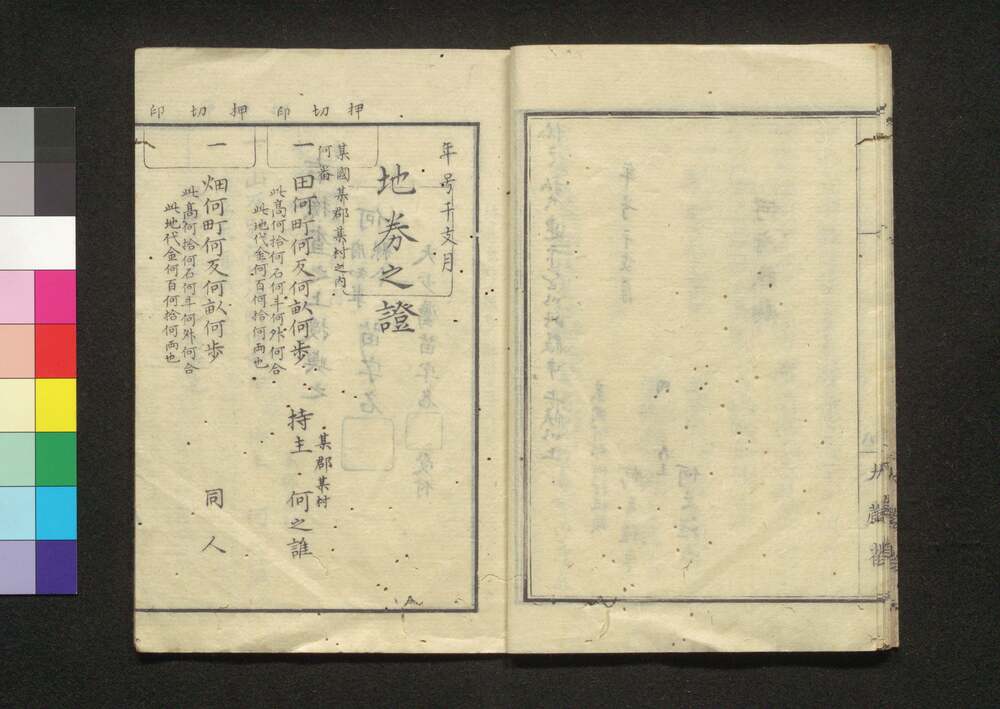 大蔵省
押切印
押切印
年号干支月
地券之證
某國某郡某村之内
何番
一田何町何反何畝何歩
此高何拾何石何斗何升何合
此地代金何百何拾何両也
某郡某村
持主 何之誰
一畑何町何反何畝何歩
此高何拾何石何斗何升何合
此地代金何百何拾何両也
同人